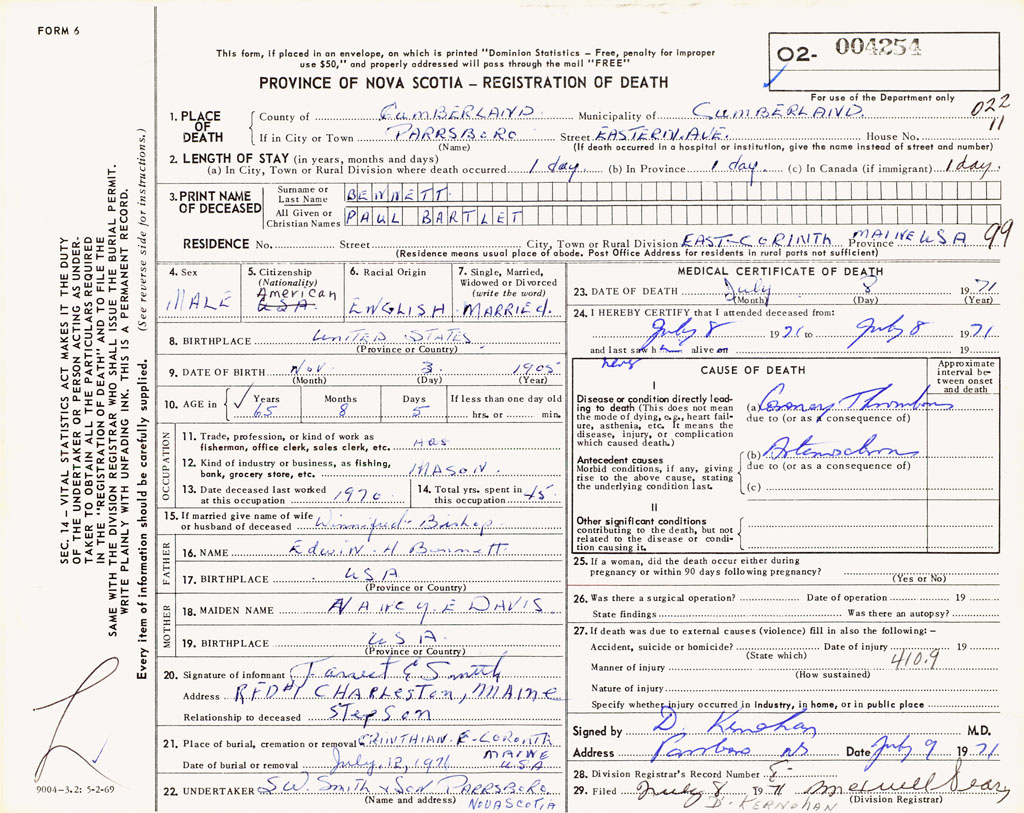 FORM 6
This form, if placed in an envelope, on which is printed "Dominion Statistics – Free, penalty for improper
use $50," and properly addressed will pass through the mail "FREE"
PROVINCE OF NOVA SCOTIA – REGISTRATION OF DEATH
O2- 004254
For use of the Department only
022
11
1. PLACE OF DEATH
County of CUMBERLAND. Municipality of CUMBERLAND.
If in City or Town PARRSBORO Street EASTERN AVE. House No.
(Name) (If death occurred in a hospital or institution, give the name instead of street and number)
2. LENGTH OF STAY (in years, months and days)
(a) In City, Town or Rural Division where death occurred 1 day. (b) In Province 1 day. (c) In Canada (if immigrant) 1 day.
3. PRINT NAME OF DECEASED
Surname or Last Name BENNETT
All Given or Christian Names PAUL BARTLET
RESIDENCE No. Street City, Town or Rural Division EAST-CORINTH Province MAINE USA 99
(Residence means usual place of abode. Post Office Address for residents in rural parts not sufficient)
4. Sex
MALE
5. Citizenship
(Nationality)
American
USA
6. Racial Origin
ENGLISH
7. Single, Married,
Widowed or Divorced
(write the word)
MARRIED.
8. BIRTHPLACE UNITED STATES
(Province or Country)
9. DATE OF BIRTH NOV. 3 1905
(Month) (Day) (Year)
10. AGE in Years Months Days If less than one day old
65 8 5 hrs. or min.
OCCUPATION
11. Trade, profession, or kind of work as
fisherman, office clerk, sales clerk, etc.
12. Kind of industry or business, as fishing,
bank, grocery store, etc. MASON.
13. Date deceased last worked
at this occupation 1970
14. Total yrs. spent in
this occupation 45
15. If married give name of wife
or husband of deceased Winnifred Bishop
FATHER
16. NAME Edwin H Bennett
17. BIRTHPLACE USA
(Province or Country)
MOTHER
18. MAIDEN NAME NANCY E DAVIS
19. BIRTHPLACE USA
(Province or Country)
20. Signature of informant E Smith
Address RFD#1 CHARLESTON, MAINE
Relationship to deceased STEPSON
21. Place of burial, cremation or removal CORINTHIAN E-CORINTH
MAINE
U.S.A.
Date of burial or removal July, 12, 1971
22. UNDERTAKER SW. Smith & Son PARRSBORO
(Name and address) NOVA SCOTIA
MEDICAL CERTIFICATE OF DEATH
23. DATE OF DEATH July 8 1971
(Month) (Day) (Year)
24. I HEREBY CERTIFY that I attended deceased from:
July 8 1971 to July 8 1971
and last saw him alive on 19
never
CAUSE OF DEATH
Approximate
interval be-
tween onset
and death
I
Disease or condition directly lead-
ing to death (This does not mean
the mode of dying, e.g., heart fail-
ure, asthenia, etc. It means the
disease, injury, or complication
which caused death.)
(a) Coronary Thrombosis
due to (or as a consequence of)
Antecedent causes
Morbid conditions, if any, giving
rise to the above cause, stating
the underlying condition last.
(b)
due to (or as a consequence of)
(c)
II
Other significant conditions
contributing to the death, but not
related to the disease or condi-
tion causing it.
25. If a woman, did the death occur either during
pregnancy or within 90 days following pregnancy?
(Yes or No)
26. Was there a surgical operation? Date of operation 19
State findings Was there an autopsy?
27. If death was due to external causes (violence) fill in also the following: –
Accident, suicide or homicide? Date of injury 19
(State which)
410.9
Manner of injury
(How sustained)
Nature of injury
Specify whether injury occurred in industry, in home, or in public place
Signed by D. Kernohan M.D.
Address Parrsboro NS Date July 9 1971
28. Division Registrar's Record Number 5
29. Filed July 8 1971 Maxwell
D. KERNOHAN (Division Registrar)
SEC. 14 – VITAL STATISTICS ACT MAKES IT THE DUTY
OF THE UNDERTAKER OR PERSON ACTING AS UNDER-
TAKER TO OBTAIN ALL THE PARTICULARS REQUIRED
IN THE "REGISTRATION OF DEATH" AND TO FILE THE
SAME WITH THE DIVISION REGISTRAR WHO SHALL ISSUE THE BURIAL PERMIT.
WRITE PLAINLY WITH UNFADING INK. THIS IS A PERMANENT RECORD.
Every item of information should be carefully supplied. (See reverse side for instructions.)
9004-3.2: 5-2-69